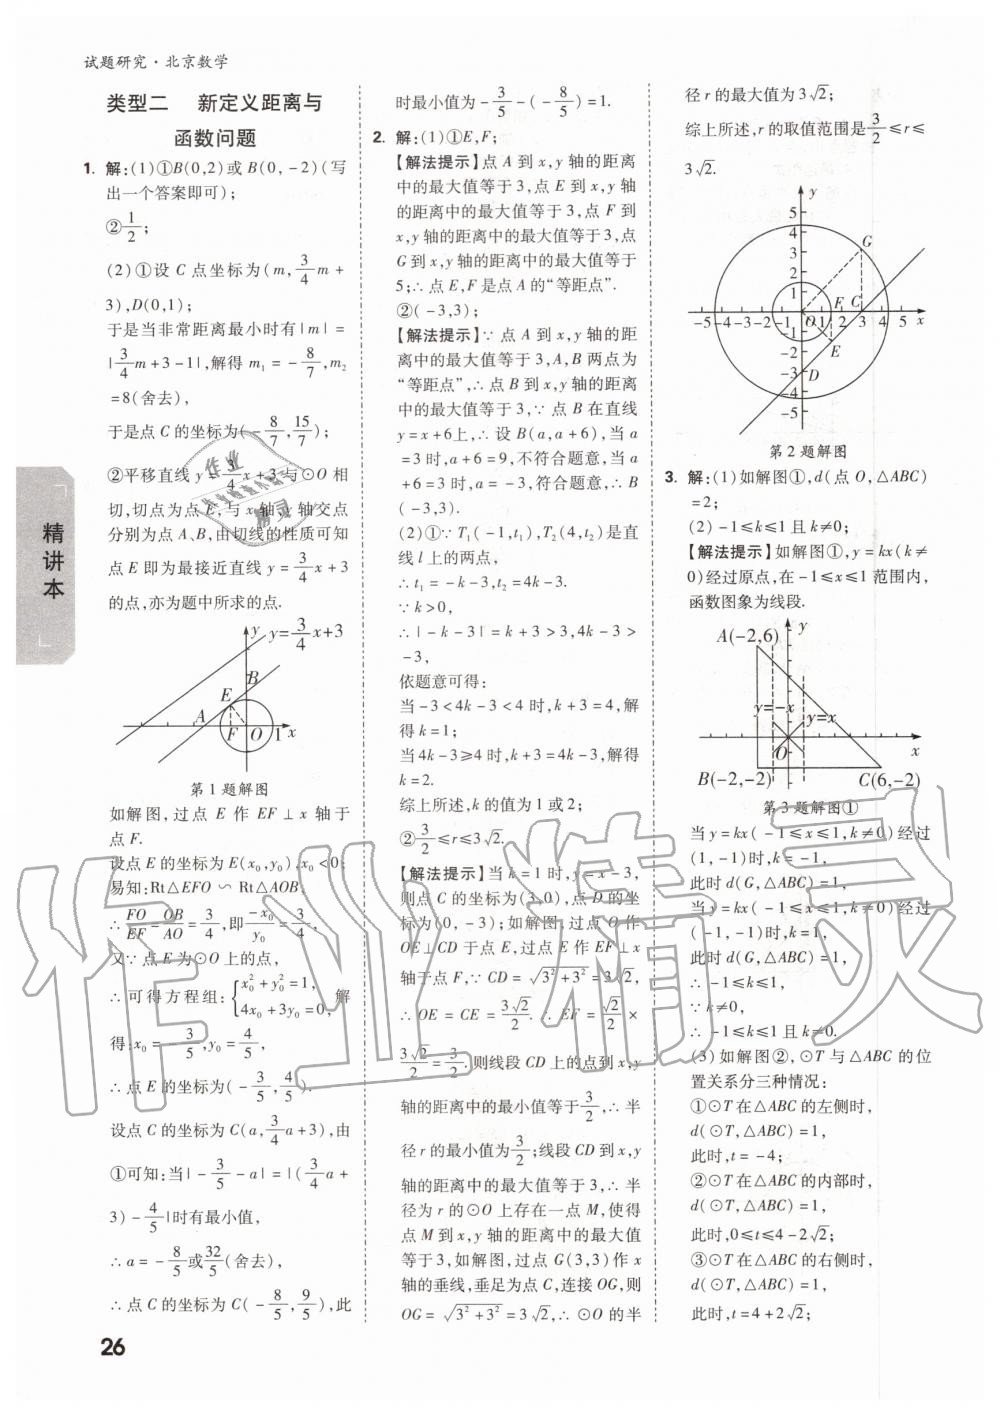 试题研究·北京数学
类型二 新定义距离与
函数问题
1. 解:(1)①B(0,2)或B(0,-2)(写
出一个答案即可);
②1/2;
(2)①设C点坐标为(m,3/4m+
3),D(0,1);
于是当非常距离最小时有|m|=
|3/4m+3-1|,解得m₁=-8/7,m₂
=8(舍去),
于是点C的坐标为(-8/7,15/7);
②平移直线y=3/4x+3与⊙O相
切,切点为点E,与x轴、y轴交点
分别为点A、B,由切线的性质可知
点E即为最接近直线y=3/4x+3
的点,亦为题中所求的点.
y
y=3/4x+3
B
E
A
F O 1 x
第1题解图
如解图,过点E作EF⊥x轴于
点F.
设点E的坐标为E(x₀,y₀),x₀<0;
易知:Rt△EFO∽Rt△AOB,
∴FO/EF=OB/AO=3/4,即-x₀/y₀=3/4,
又∵点E为⊙O上的点,
∴可得方程组:{x₀²+y₀²=1, 4x₀+3y₀=0, 解
得:x₀=-3/5,y₀=4/5,
∴点E的坐标为(-3/5,4/5).
设点C的坐标为C(a,3/4a+3),由
①可知:当|-3/5-a|=|(3/4a+
3)-4/5|时有最小值,
∴a=-8/5或32/5(舍去),
∴点C的坐标为C(-8/5,9/5),此
时最小值为-3/5-(-8/5)=1.
2. 解:(1)①E,F;
【解法提示】点A到x,y轴的距离
中的最大值等于3,点E到x,y轴
的距离中的最大值等于3,点F到
x,y轴的距离中的最大值等于3,点
G到x,y轴的距离中的最大值等于
5;∴点E,F是点A的“等距点”.
②(-3,3);
【解法提示】∵点A到x,y轴的距
离中的最大值等于3,A,B两点为
“等距点”,∴点B到x,y轴的距离
中的最大值等于3,∵点B在直线
y=x+6上,∴设B(a,a+6),当a
=3时,a+6=9,不符合题意,当a
+6=3时,a=-3,符合题意,∴B
(-3,3).
(2)①∵T₁(-1,t₁),T₂(4,t₂)是直
线l上的两点,
∴t₁=-k-3,t₂=4k-3.
∵k>0,
∴|-k-3|=k+3>3,4k-3>
-3,
依题意可得:
当-3<4k-3<4时,k+3=4,解
得k=1;
当4k-3≥4时,k+3=4k-3,解得
k=2.
综上所述,k的值为1或2;
②3/2≤r≤3√2.
【解法提示】当k=1时,y=x-3,
则点C的坐标为(3,0),点D的坐
标为(0,-3);如解图,过点O作
OE⊥CD于点E,过点E作EF⊥x
轴于点F,∵CD=√3²+3²=3√2,
∴OE=CE=3√2/2.∴EF=√2/2×
3√2/2=3/2.则线段CD上的点到x,y
轴的距离中的最小值等于3/2,∴半
径r的最小值为3/2;线段CD到x,y
轴的距离中的最大值等于3,∴半
径为r的⊙O上存在一点M,使得
点M到x,y轴的距离中的最大值
等于3,如解图,过点G(3,3)作x
轴的垂线,垂足为点C,连接OG,则
OG=√3²+3²=3√2,∴⊙O的半
径r的最大值为3√2;
综上所述,r的取值范围是3/2≤r≤
3√2.
y
5
4
3
2
1
G
F C
-5 -4 -3 -2 -1 O 1 2 3 4 5 x
-1
-2
-3
-4
-5
E
D
第2题解图
3. 解:(1)如解图①,d(点O,△ABC)
=2;
(2)-1≤k≤1且k≠0;
【解法提示】如解图①,y=kx(k≠
0)经过原点,在-1≤x≤1范围内,
函数图象为线段.
A(-2,6) y
y=-x y=x
O x
B(-2,-2) C(6,-2)
第3题解图①
当y=kx(-1≤x≤1,k≠0)经过
(1,-1)时,k=-1,
此时d(G,△ABC)=1,
当y=kx(-1≤x≤1,k≠0)经过
(-1,-1)时,k=1,
此时d(G,△ABC)=1,
∴-1≤k≤1,
∵k≠0,
∴-1≤k≤1且k≠0.
(3)如解图②,⊙T与△ABC的位
置关系分三种情况:
①⊙T在△ABC的左侧时,
d(⊙T,△ABC)=1,
此时,t=-4;
②⊙T在△ABC的内部时,
d(⊙T,△ABC)=1,
此时,0≤t≤4-2√2;
③⊙T在△ABC的右侧时,
d(⊙T,△ABC)=1,
此时,t=4+2√2;
精讲本
26
作业精灵